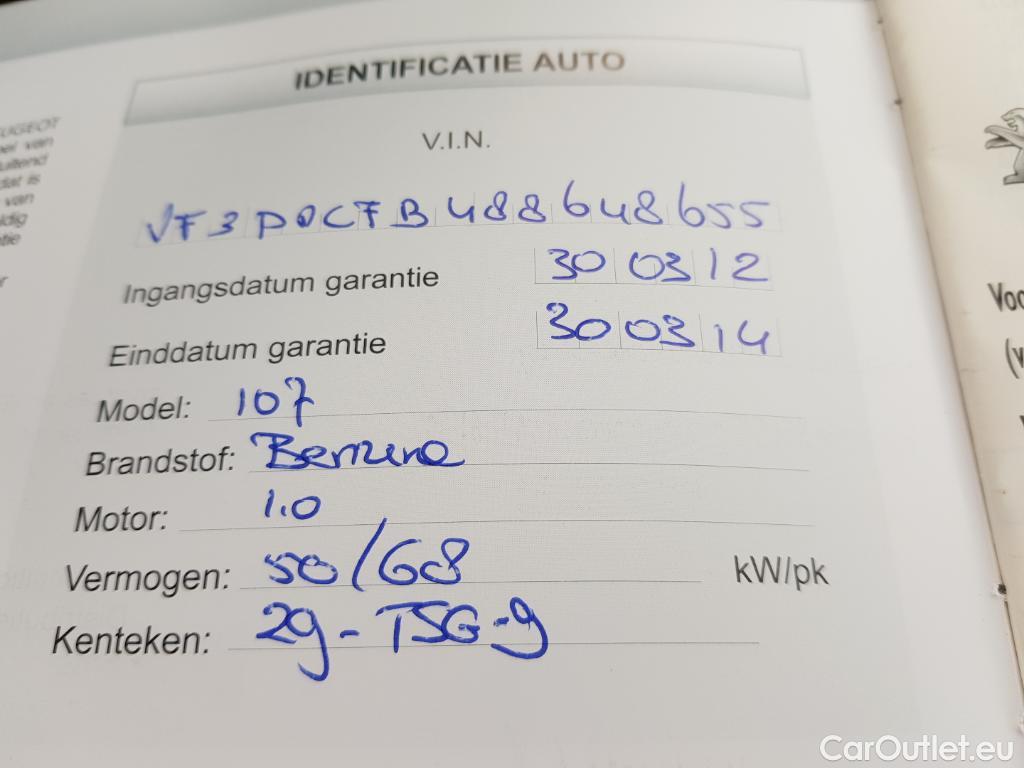 IDENTIFICATIE AUTO
V.I.N.
VF3P0CFB488648655
Ingangsdatum garantie 30 03 12
Einddatum garantie 30 03 14
Model: 107
Brandstof: Benzine
Motor: 1.0
Vermogen: 50/68 kW/pk
Kenteken: 29-TSG-9
UGEOT
van
dat is
van
Voo
CarOutlet.eu